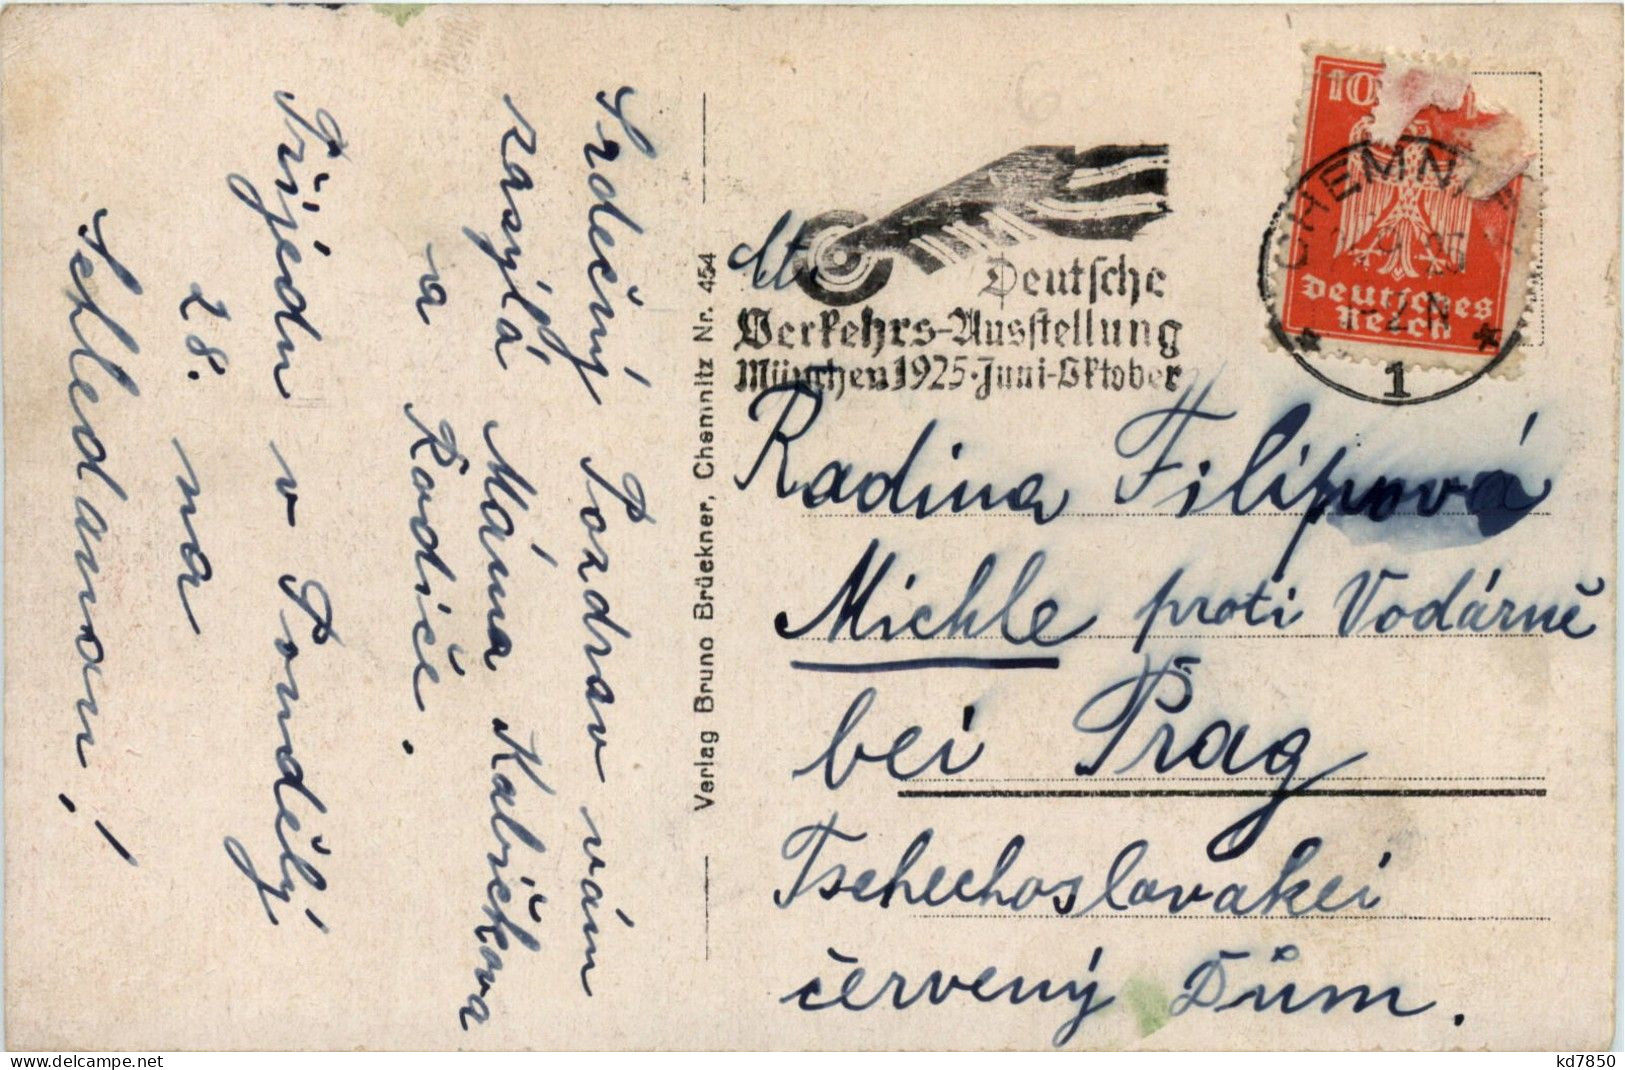 Srdečný Pozdrav vám
zasýlá Mána Kabíčkova
a Rodiče.
Přijedu v Pondělý
28. na
Schledanou!
Verlag Bruno Brückner, Chemnitz Nr. 454
Deutsche
Verkehrs-Ausstellung
München 1925·Juni-Oktober
10
CHEMNITZ
25
1-2 N
* 1 *
Deutsches
Reich
Radina Filipová
Michle proti Vodárně
bei Prag
Tschechoslovakei
červený Dům.
delcampe.net
kd7850